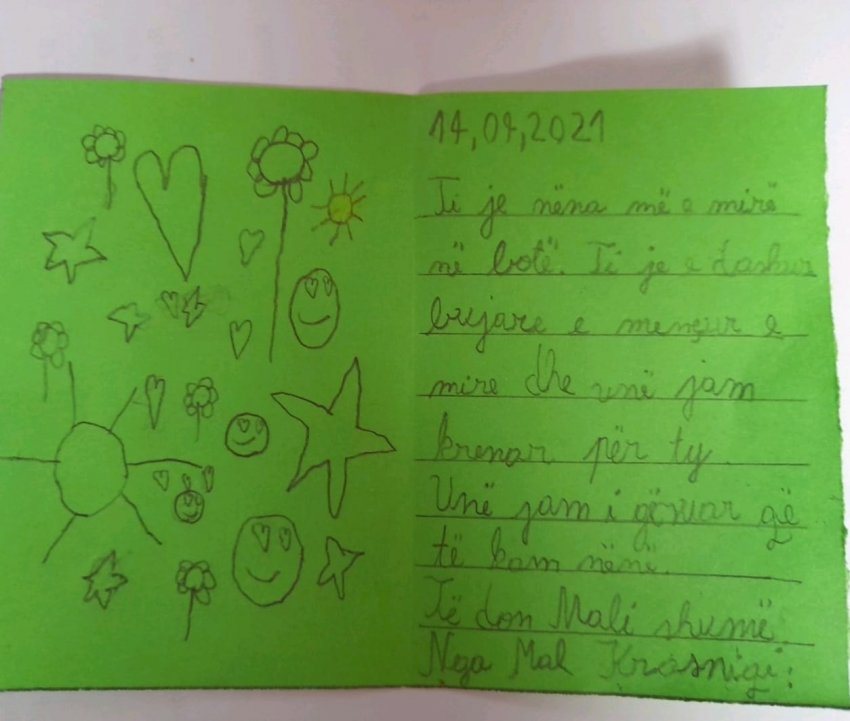 14,04,2021
Ti je nëna më e mirë
në botë. Ti je e dashur
bujare e mençur e
mire dhe unë jam
krenar për ty
Unë jam i gëzuar që
të kam nënë.
Të don Mali shumë.
Nga Mal Krasniqi: